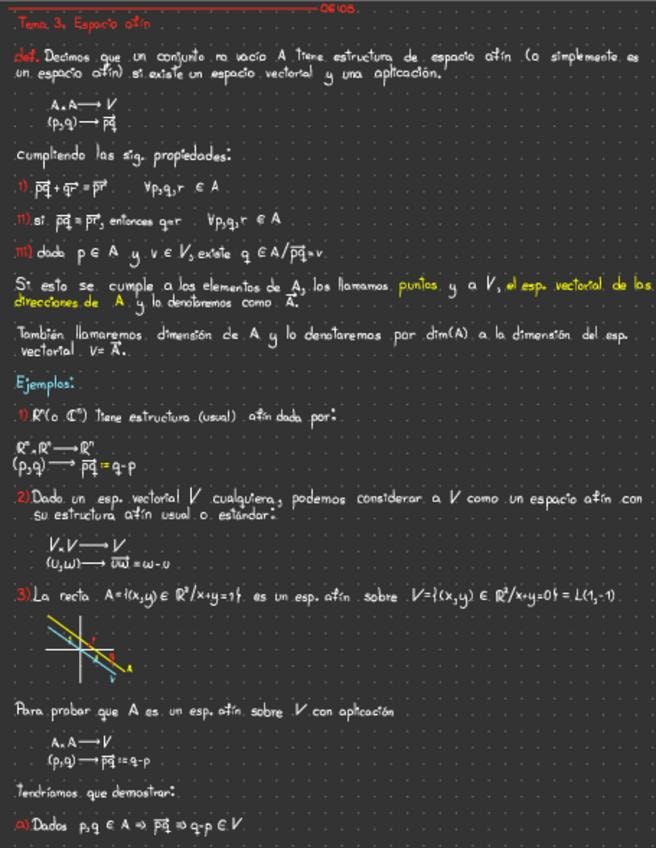 06/05.
Tema 3. Espacio afín
def. Decimos que un conjunto no vacío A tiene estructura de espacio afín (o simplemente es
un espacio afín) si existe un espacio vectorial y una aplicación.
A×A ⟶ V
(p,q) ⟶ p͞q⃗
cumpliendo las sig. propiedades:
i) pq⃗ + qr⃗ = pr⃗ ∀p,q,r ∈ A
ii) si pq⃗ = pr⃗, entonces q=r ∀p,q,r ∈ A
iii) dado p ∈ A y v ∈ V, existe q ∈ A/pq⃗=v
Si esto se cumple a los elementos de A, los llamamos puntos y a V, el esp. vectorial de las
direcciones de A y lo denotaremos como A⃗.
También llamaremos dimensión de A y lo denotaremos por dim(A) a la dimensión del esp.
vectorial V=A⃗.
Ejemplos:
1) ℝⁿ(o ℂⁿ) tiene estructura (usual) afín dada por:
ℝⁿ×ℝⁿ ⟶ ℝⁿ
(p,q) ⟶ pq⃗ := q-p
2) Dado un esp. vectorial V cualquiera, podemos considerar a V como un espacio afín con
su estructura afín usual o estándar:
V×V ⟶ V
(u,w) ⟶ uw⃗ = w-u
3) La recta A={(x,y) ∈ ℝ²/x+y=1} es un esp. afín sobre V={(x,y) ∈ ℝ²/x+y=0} = L(1,-1)
A
V
Para probar que A es un esp. afín sobre V con aplicación
A×A ⟶ V
(p,q) ⟶ pq⃗ := q-p
Tendríamos que demostrar:
a) Dados p,q ∈ A ⇒ pq⃗ ⇒ q-p ∈ V